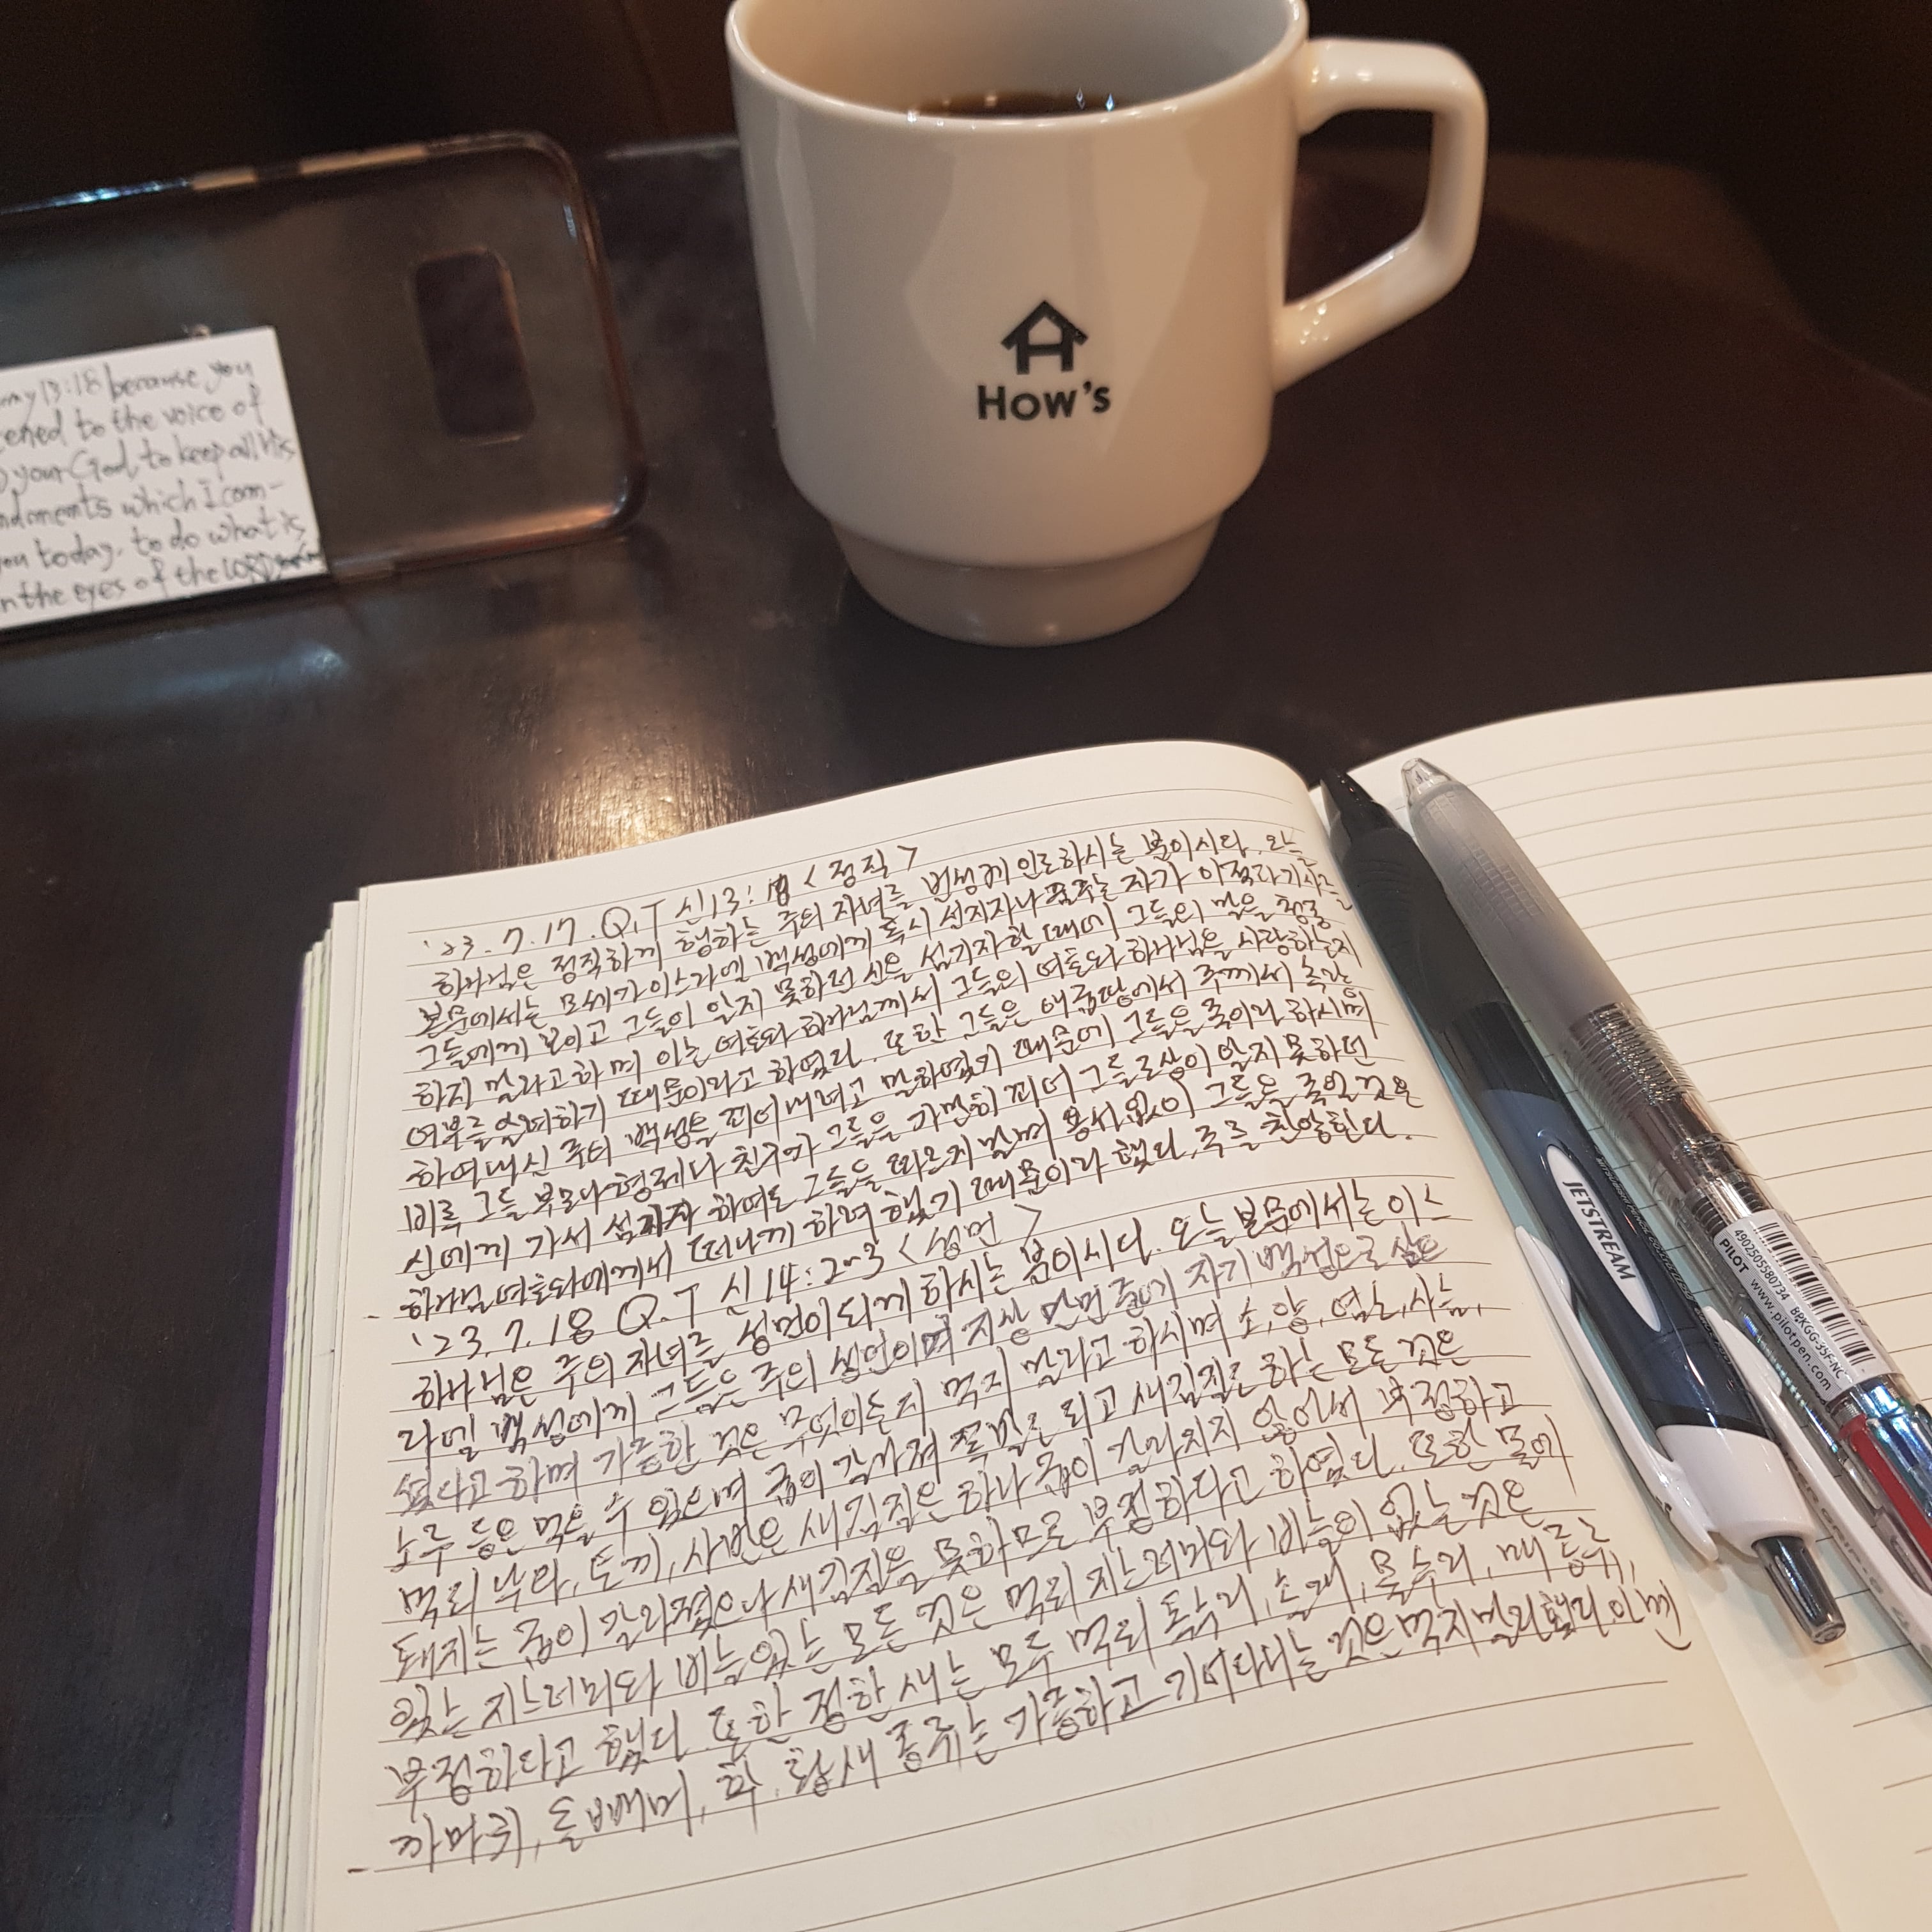 How's
my 13:18 because you
ened to the voice of
your God, to keep all His
ndments which I com-
ou today, to do what is
n the eyes of the LORD
'23.7.17. Q.T 신13:18 <정직>
하나님은 정직하게 행하는 주의 자녀를 번성케 인도하시는 분이시다. 오늘
본문에서는 모세가 이스라엘 백성에게 혹시 선지자나 꿈꾸는 자가 이적과 기사를
그들에게 보이고 그들이 알지 못하던 신을 섬기자 할 때에 그들의 말을 청종
하지 말라고 하며 이는 여호와 하나님께서 그들의 여호와 하나님을 사랑하는지
여부를 알려하기 때문이라고 하였다. 또한 그들은 애굽땅에서 주께서 속량
하여내신 주의 백성을 꾀어내려고 말하였기 때문에 그들을 죽이라 하시며
비록 그들 부모나 형제나 친구가 그들을 가만히 꾀어 그들조상이 알지 못하던
신에게 가서 섬기자 하여도 그들을 따르지 말며 용서없이 그들을 죽일 것은
하나님 여호와에게서 떠나게 하려 했기 때문이라 했다. 주를 찬양한다.
'23.7.18 Q.T 신14:2~3 <성민>
하나님은 주의 자녀를 성민이 되게 하시는 분이시다. 오늘 본문에서는 이스
라엘 백성에게 그들은 주의 성민이며 지상 만민 중에 자기 백성으로 삼으
셨다고 하며 가증한 것은 무엇이든지 먹지 말라고 하시며 소, 양, 염소, 사슴,
노루 등은 먹을 수 있으며 굽이 갈라져 쪽발도 되고 새김질도 하는 모든 것은
먹되 낙타, 토끼, 사반은 새김질은 하나 굽이 갈라지지 않아서 부정하고
돼지는 굽이 갈라졌으나 새김질을 못하므로 부정하다고 하였다. 또한 물에
있는 지느러미와 비늘있는 모든 것은 먹되 지느러미와 비늘이 없는 것은
부정하다고 했다. 또한 정한 새는 모두 먹되 독수리, 솔개, 물수리, 매 종류,
까마귀, 올빼미, 학, 황새 종류는 가증하고 기어다니는 것은 먹지말라 했다.
JETSTREAM
4902505580734 BPKGG-35F-NC
PILOT www.pilotpen.com